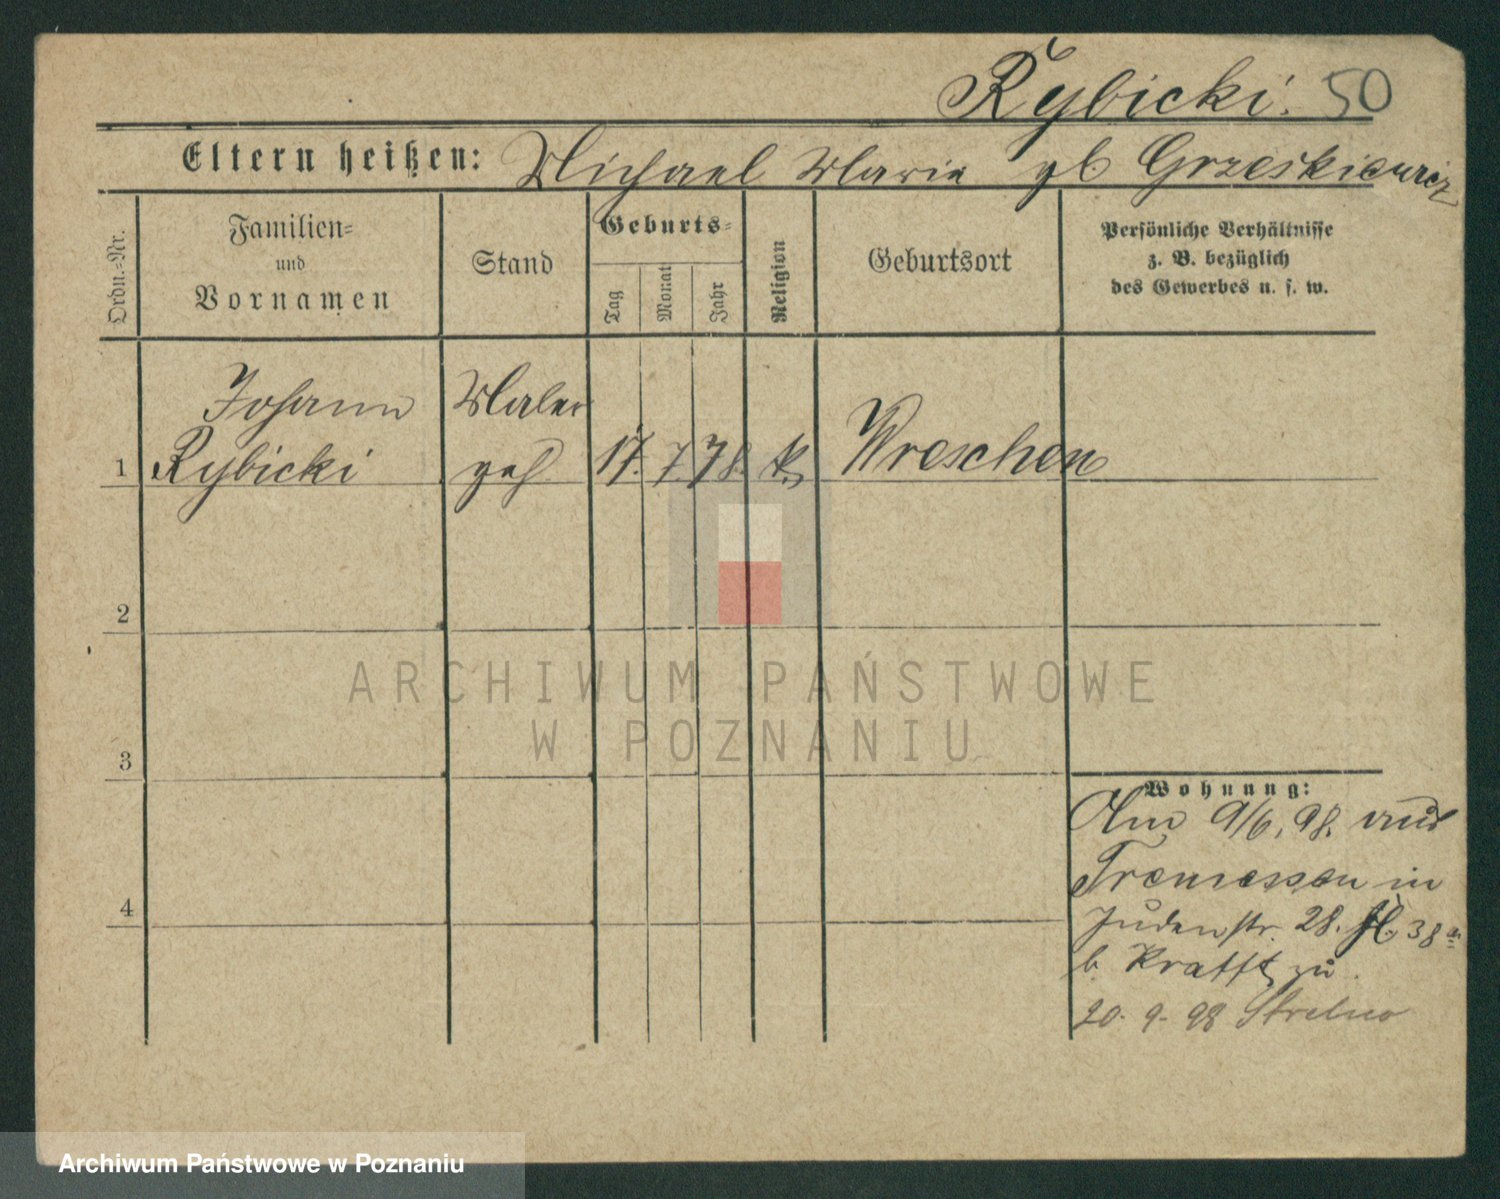 Rybicki. 50
Eltern heißen: Michael Marie gb Grzeskiewicz
Ordn.=Nr.
Familien=
und
Vornamen
Stand
Geburts=
Tag
Monat
Jahr
Religion
Geburtsort
Persönliche Verhältnisse
z. B. bezüglich
des Gewerbes u. s. w.
Johann Maler
1 Rybicki geh. 17. 7. 78. k. Wreschen
2
ARCHIWUM PAŃSTWOWE
W POZNANIU
3
Wohnung:
Am 9/6. 98. aus
Tremessen in
4
Judenstr. 28. 38
b. Krafft zu.
20. 9. 98 Strelno
Archiwum Państwowe w Poznaniu